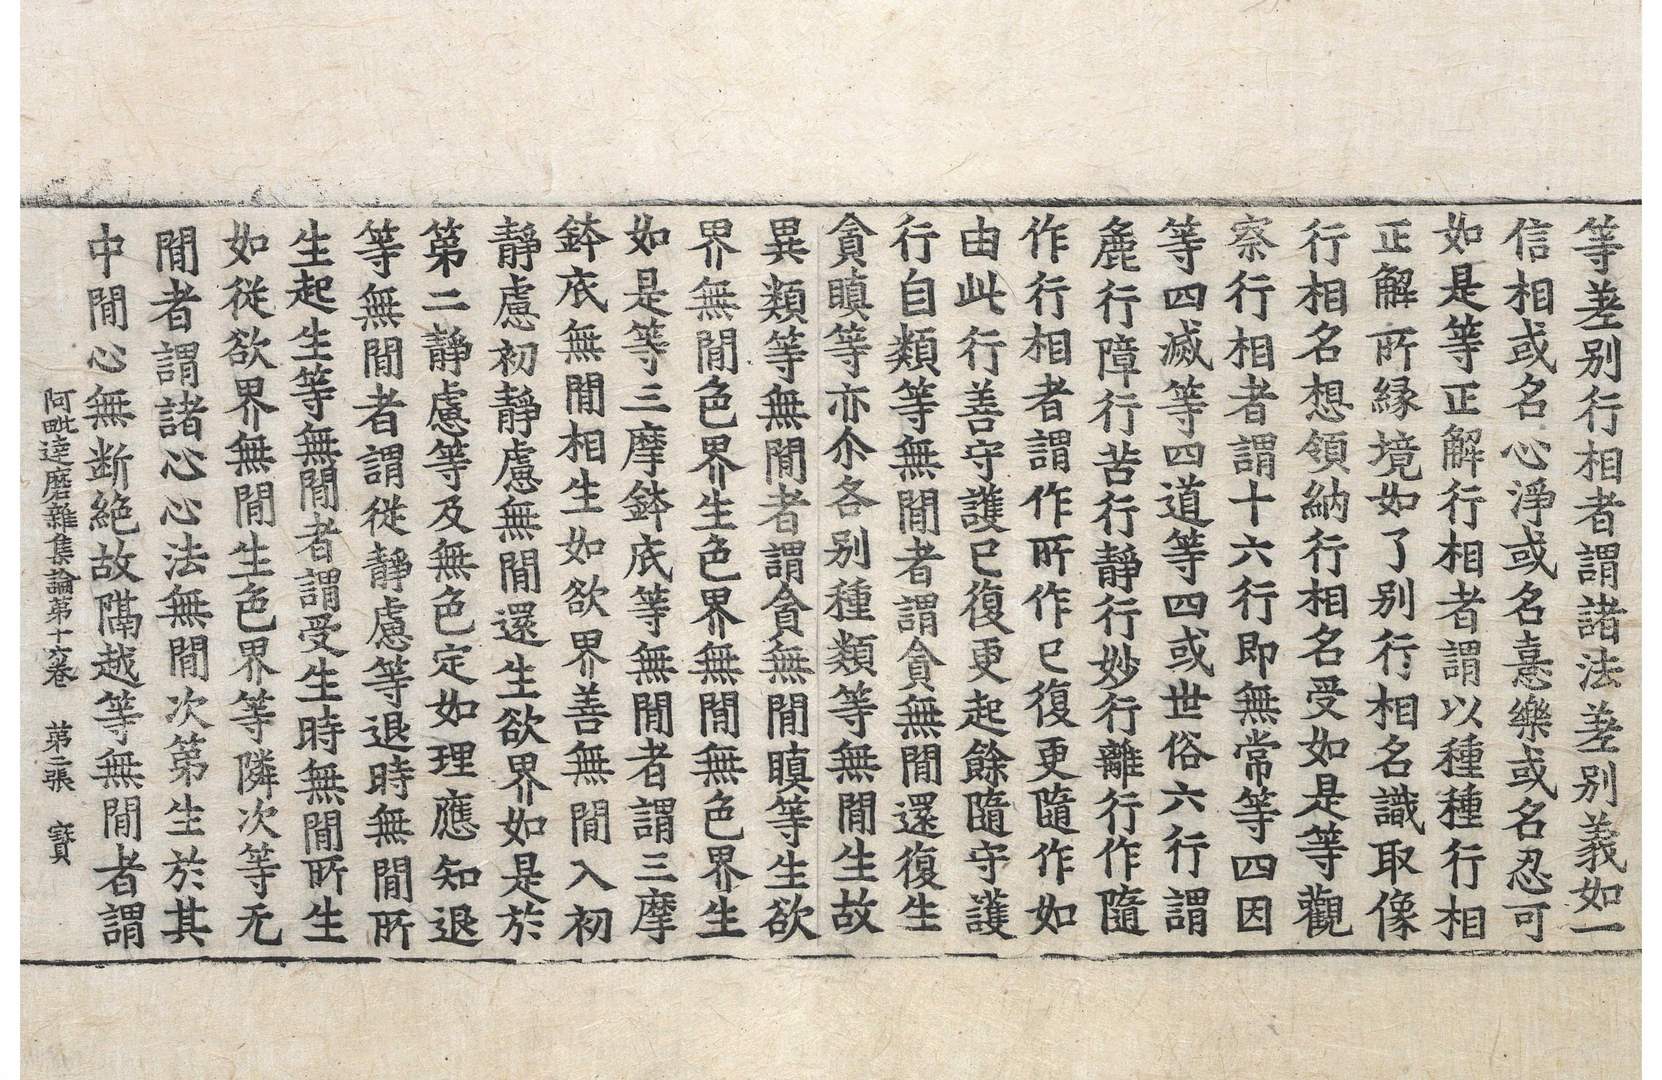 等差別行相者謂諸法差別義如一
信相或名心淨或名憙樂或名忍可
如是等正解行相者謂以種種行相
正解所縁境如了別行相名識取像
行相名想領納行相名受如是等觀
察行相者謂十六行即無常等四因
等四滅等四道等四或世俗六行謂
麁行障行苦行靜行妙行離行作隨
作行相者謂作所作已復更隨作如
由此行善守護已復更起餘隨守護
行自類等無閒者謂貪無閒還復生
貪瞋等亦尒各別種類等無閒生故
異類等無閒者謂貪無閒瞋等生欲
界無閒色界生色界無閒無色界生
如是等三摩鉢底等無閒者謂三摩
鉢底無閒相生如欲界善無閒入初
靜慮初靜慮無閒還生欲界如是於
第二靜慮等及無色定如理應知退
等無閒者謂從靜慮等退時無閒所
生起生等無閒者謂受生時無閒所生
如從欲界無閒生色界等隣次等无
閒者謂諸心心法無閒次第生於其
中閒心無断絶故隔越等無閒者謂
阿毗達磨雜集論第十六卷 第二張 寳